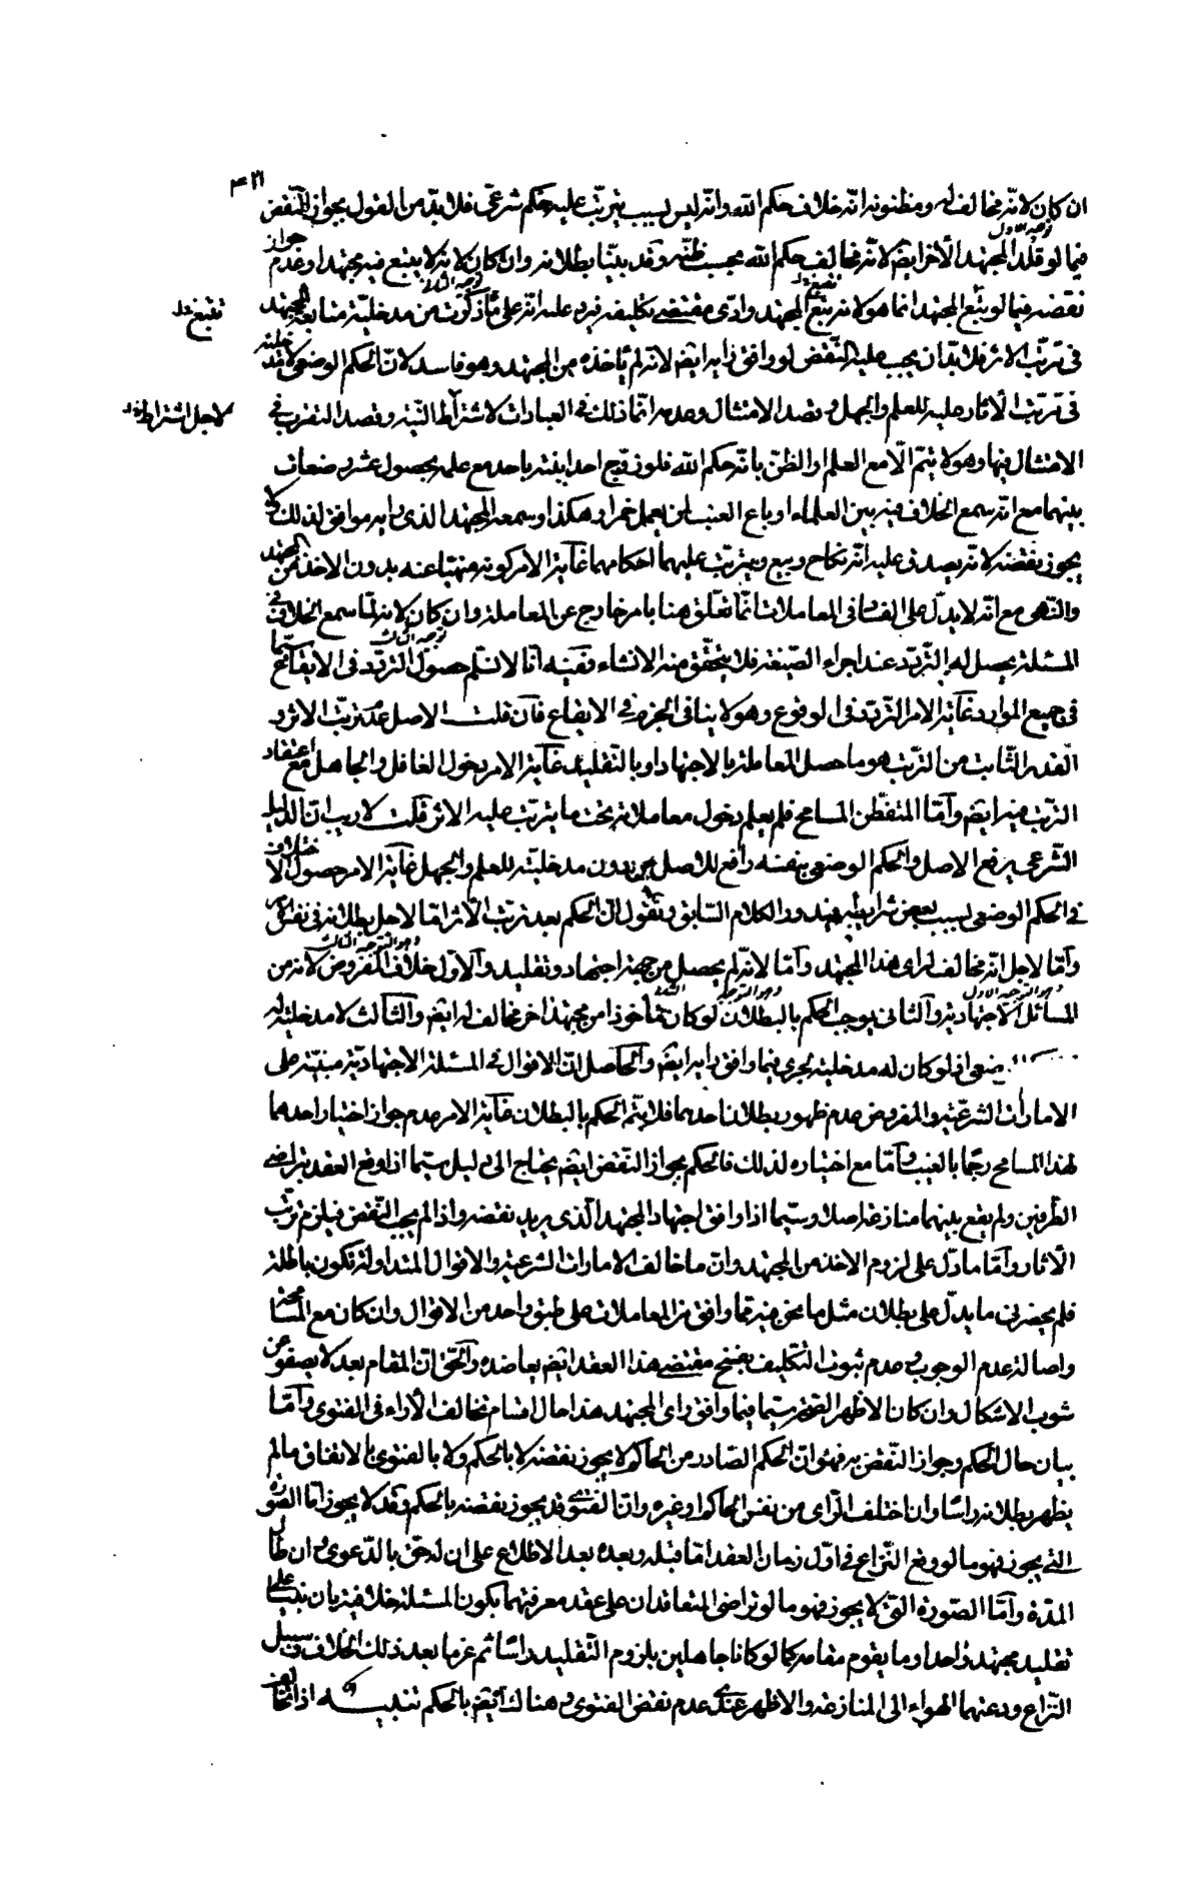 ان كان لانّه مخالف له ومظنونه انّه خلاف حكم الله وانّه ليس بسبب يترتّب عليه حكم شرعىّ فلا بدّ من القول بجواز النّقض
فيما لو قلّد المجتهد الآخر ايضا لانّه مخالف حكم الله بحسب ظنّه وقد بيّنا بطلانه وان كان لانه لا يتبع فيه مجتهدا وعدم جواز
نقضه فيما لو يتّبع المجتهد انما هو لانه يتبع المجتهد وادّى مقتضى تكليفه فيرد عليه انه على ما ذكرت من مدخليّة متابعة المجتهد
فى ترتّب الاثر فلا بدّ ان يجب عليه النّقض لو وافق رايه ايضا لانه لم ياخذه من المجتهد وهو فاسد لانّ الحكم الوضعى لا
فى ترتّب الآثار عليه للعلم والجهل وقصد الامتثال وعدمه انّما ذلك فى العبادات لاشتراط النّية وقصد التقرب فى
لاجل اشتراط
الامتثال فيها وهو لا يتمّ الّا مع العلم او الظنّ بانّه حكم الله فلو زوّج احد ابنته باحد مع علمه بحصول عشر رضعات
بينهما مع انّه سمع الخلاف فيه بين العلماء او باع العنب لمن يعمل خمرا وهكذا وسمعه المجتهد الذى رايه موافق لذلك لا
يجوز نقضه لانّه يصدق عليه انّه نكاح وبيع ويترتّب عليهما احكامهما غاية الامر كونه منهيّا عنه بدون الاخذ من المجتهد
والنّهى مع انّه لا يدلّ على الفساد فى المعاملات انّما تعلّق هنا بامر خارج عن المعاملة وان كان لانه لمّا سمع الخلاف فى
المسئلة يحصل له التّردّد عند اجراء الصّيغة فلا يتحقّق منه الانشاء ففيه انّا لا نسلّم حصول التردّد فى الايقاع سيّما
فى جميع الموارد غاية الامر التّردّد فى الوقوع وهو لا ينافى الجزم فى الايقاع فان قلت الاصل عدم ترتّب الاثر و
القدر الثّابت من الترتّب هو ما حصل المعاملة بالاجتهاد او بالتّقليد غاية الامر دخول الغافل والجاهل مع اعتقاد
الترتّب فيه ايضا وامّا المتفطّن المسامح فلم يعلم دخول معاملاته تحت ما يترتّب عليه الاثر قلت لا ريب انّ الدليل
الشّرعى يرفع الاصل والحكم الوضعى بنفسه رافع للاصل من دون مدخليّة للعلم والجهل غاية الامر حصول الاختلاف
فى الحكم الوضعى بسبب بعض شرايطه وقيوده والكلام السّابق ونقول انّ الحكم بعد ترتّب الاثر امّا لاجل بطلانه فى نفس الامر
وامّا لاجل انّه مخالف لراى هذا المجتهد وامّا لانّه لم يحصل من جهة اجتهاد وتقليد والاوّل خلاف المفروض لانه من
المسائل الاجتهادية والثانى يوجب الحكم بالبطلان لو كان ماخوذا من مجتهد آخر مخالف له ايضا والثّالث لا مدخليّة له
لو كان له مدخلية لجرى فيما وافق رايه ايضا والحاصل انّ الاقوال فى المسئلة الاجتهاديّة مبنيّة على
الامارات الشرعيّة والمفروض عدم ظهور بطلان احدهما فلا يتمّ الحكم بالبطلان غاية الامر عدم جواز اختيار احدهما
لهذا المسامح رجما بالغيب وامّا مع اختياره لذلك فالحكم بجواز النّقض ايضا يحتاج الى دليل سيّما اذا وقع العقد بتراضى
الطّرفين ولم يقع بينهما منازعة اصلا وسيّما اذا وافق اجتهاد المجتهد الّذى يريد نقضه واذا لم يجب النّقض فيلزم ترتّب
الآثار وامّا ما دلّ على لزوم الاخذ من المجتهد وانّ ما خالف الامارات الشرعية والاقوال المتداولة تكون باطلة
فلم يحضرنى ما يدلّ على بطلان مثل ما نحن فيه ممّا وافق من المعاملات على طبق واحد من الاقوال وان كان مع المسامحة
واصالة عدم الوجوب وعدم ثبوت التكليف بفسخ مقتضى هذا العقد ايضا يعاضده والحقّ انّ المقام بعد لا يصفو عن
شوب الاشكال وان كان الاظهر الصّحة سيّما فيما وافق راى المجتهد هذا حال اقسام تخالف الآراء فى الفتوى وامّا
بيان حال الحكم وجواز النّقض به فهو انّ الحكم الصّادر من الحاكم لا يجوز نقضه لا بالحكم ولا بالفتوى بالاتفاق ما لم
يظهر بطلانه راسا وان اختلف الرّاى من نفس الحاكم او غيره وانّ الفتوى قد يجوز نقضه بالحكم وقد لا يجوز امّا الصّورة
التى يجوز فهو ما لو وقع النّزاع فى اوّل زمان العقد امّا قبله وبعده بعد الاطّلاع على ان له حقّ بالدّعوى وان طال
المدّة وامّا الصّورة التى لا يجوز فهو ما لو تراضى المتعاقدان على عقد معرفتهما بكون المسئلة خلافية بان بنيا على
تقليد مجتهد واحد او ما يقوم مقامه كما لو كانا جاهلين بلزوم التّقليد راسا ثم عرفا بعد ذلك الخلاف سبيل
النّزاع ودعتهما الهواء الى المنازعة والاظهر عندى عدم نقض الفتوى وهناك ايضا بالحكم تنبيه اذا